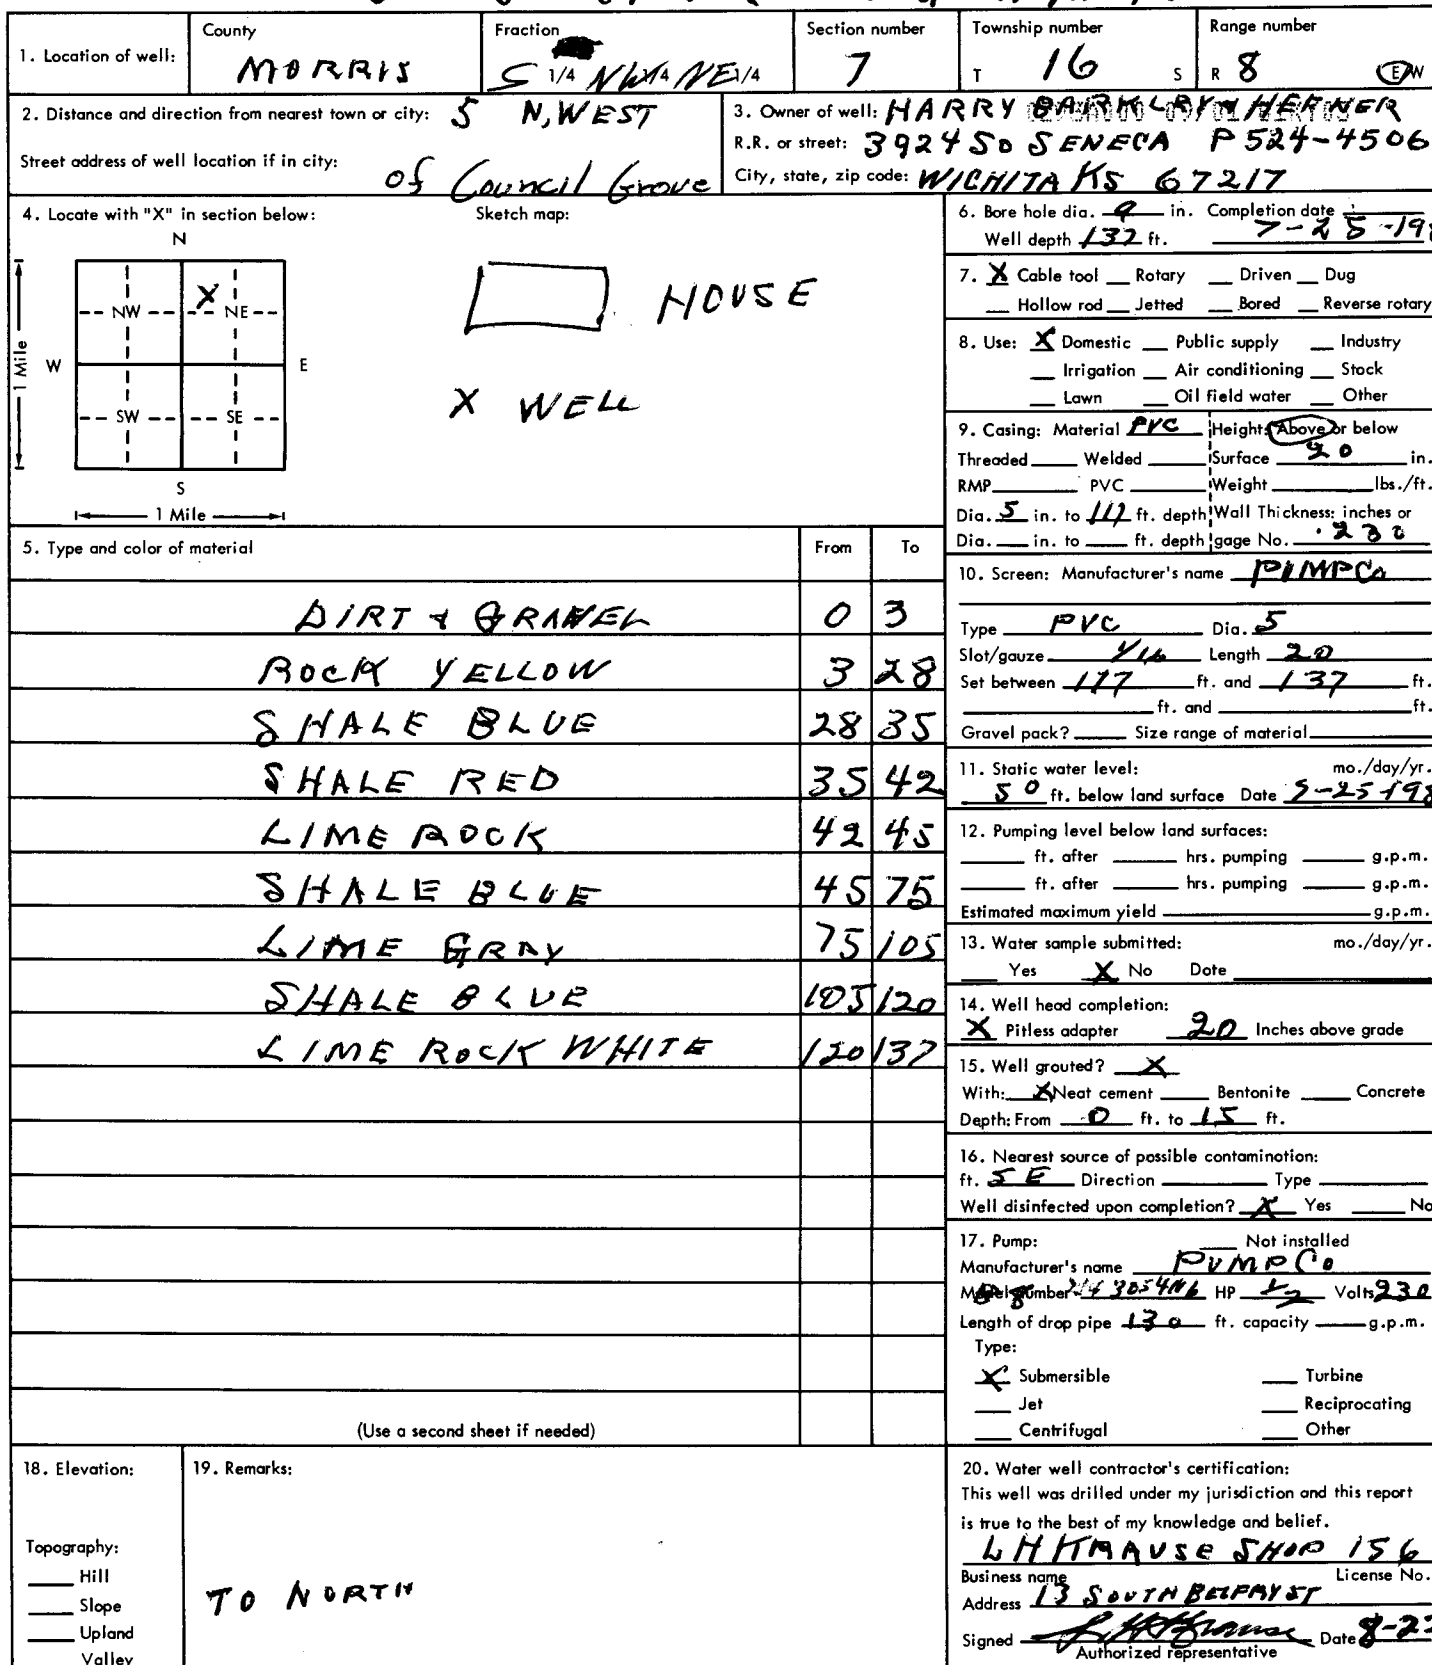 County Fraction Section number Township number Range number
1. Location of well: MORRIS S 1/4 NW 1/4 NE 1/4 7 T 16 S R 8 E/W
2. Distance and direction from nearest town or city: 5 N, WEST
Street address of well location if in city: of Council Grove
3. Owner of well: HARRY HEFNER
R.R. or street: 3924 SO SENECA P 524-4506
City, state, zip code: WICHITA KS 67217
4. Locate with "X" in section below: Sketch map:
N
X
NW NE
W E
SW SE
S
1 Mile
1 Mile
HOUSE
X WELL
5. Type and color of material From To
DIRT + GRAVEL 0 3
ROCK YELLOW 3 28
SHALE BLUE 28 35
SHALE RED 35 42
LIME ROCK 42 45
SHALE BLUE 45 75
LIME GRAY 75 105
SHALE BLUE 105 120
LIME ROCK WHITE 120 137
(Use a second sheet if needed)
6. Bore hole dia. 9 in. Completion date
Well depth 137 ft. 7-25-198
7. X Cable tool __ Rotary __ Driven __ Dug
__ Hollow rod __ Jetted __ Bored __ Reverse rotary
8. Use: X Domestic __ Public supply __ Industry
__ Irrigation __ Air conditioning __ Stock
__ Lawn __ Oil field water __ Other
9. Casing: Material PVC Height: Above or below
Threaded ____ Welded ____ Surface 20 in.
RMP ____ PVC ____ Weight ____ lbs./ft.
Dia. 5 in. to 117 ft. depth Wall Thickness: inches or
Dia. ___ in. to ___ ft. depth gage No. .230
10. Screen: Manufacturer's name PUMP Co
Type PVC Dia. 5
Slot/gauze 1/16 Length 20
Set between 117 ft. and 137 ft.
____ ft. and ____ ft.
Gravel pack? ____ Size range of material ____
11. Static water level: mo./day/yr.
50 ft. below land surface Date 5-25-198
12. Pumping level below land surfaces:
____ ft. after ____ hrs. pumping ____ g.p.m.
____ ft. after ____ hrs. pumping ____ g.p.m.
Estimated maximum yield ____ g.p.m.
13. Water sample submitted: mo./day/yr.
__ Yes X No Date ____
14. Well head completion:
X Pitless adapter 20 Inches above grade
15. Well grouted? X
With: X Neat cement ___ Bentonite ___ Concrete
Depth: From 0 ft. to 15 ft.
16. Nearest source of possible contamination:
ft. SE Direction ____ Type ____
Well disinfected upon completion? X Yes ___ No
17. Pump: ___ Not installed
Manufacturer's name PUMP Co
Model number HP 1/2 Volts 230
Length of drop pipe 130 ft. capacity ____ g.p.m.
Type:
X Submersible ___ Turbine
___ Jet ___ Reciprocating
___ Centrifugal ___ Other
18. Elevation:
Topography:
___ Hill
___ Slope
___ Upland
Valley
19. Remarks:
TO NORTH
20. Water well contractor's certification:
This well was drilled under my jurisdiction and this report
is true to the best of my knowledge and belief.
L H KRAUSE SHOP 156
Business name License No.
Address 13 SOUTH
Signed L H Krause Date 8-2
Authorized representative